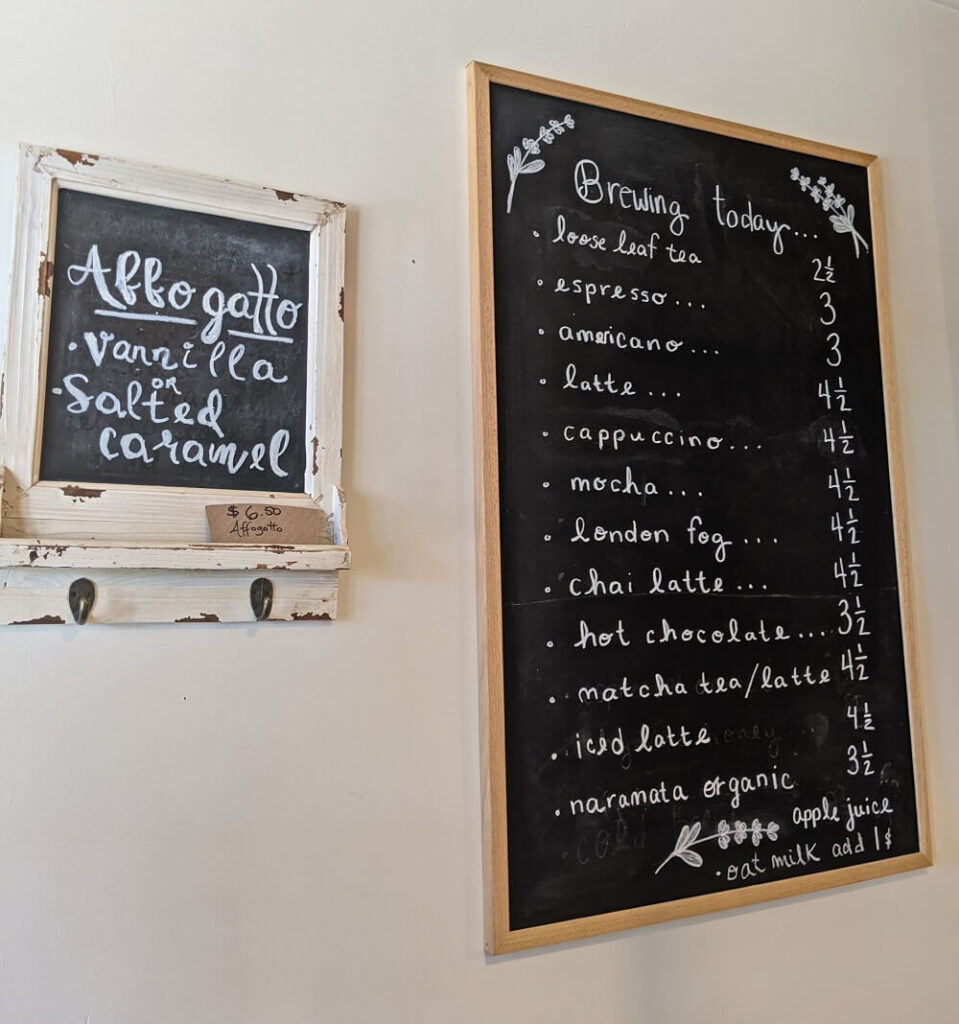 Affogatto
• Vannilla
OR
• Salted
caramel
$ 6.50
Affogatto
Brewing today...
• loose leaf tea 2½
• espresso... 3
• americano... 3
• latte... 4½
• cappuccino... 4½
• mocha... 4½
• london fog... 4½
• chai latte... 4½
• hot chocolate... 3½
• matcha tea/latte 4½
• iced latte 4½
• naramata organic 3½
apple juice
• oat milk add 1$